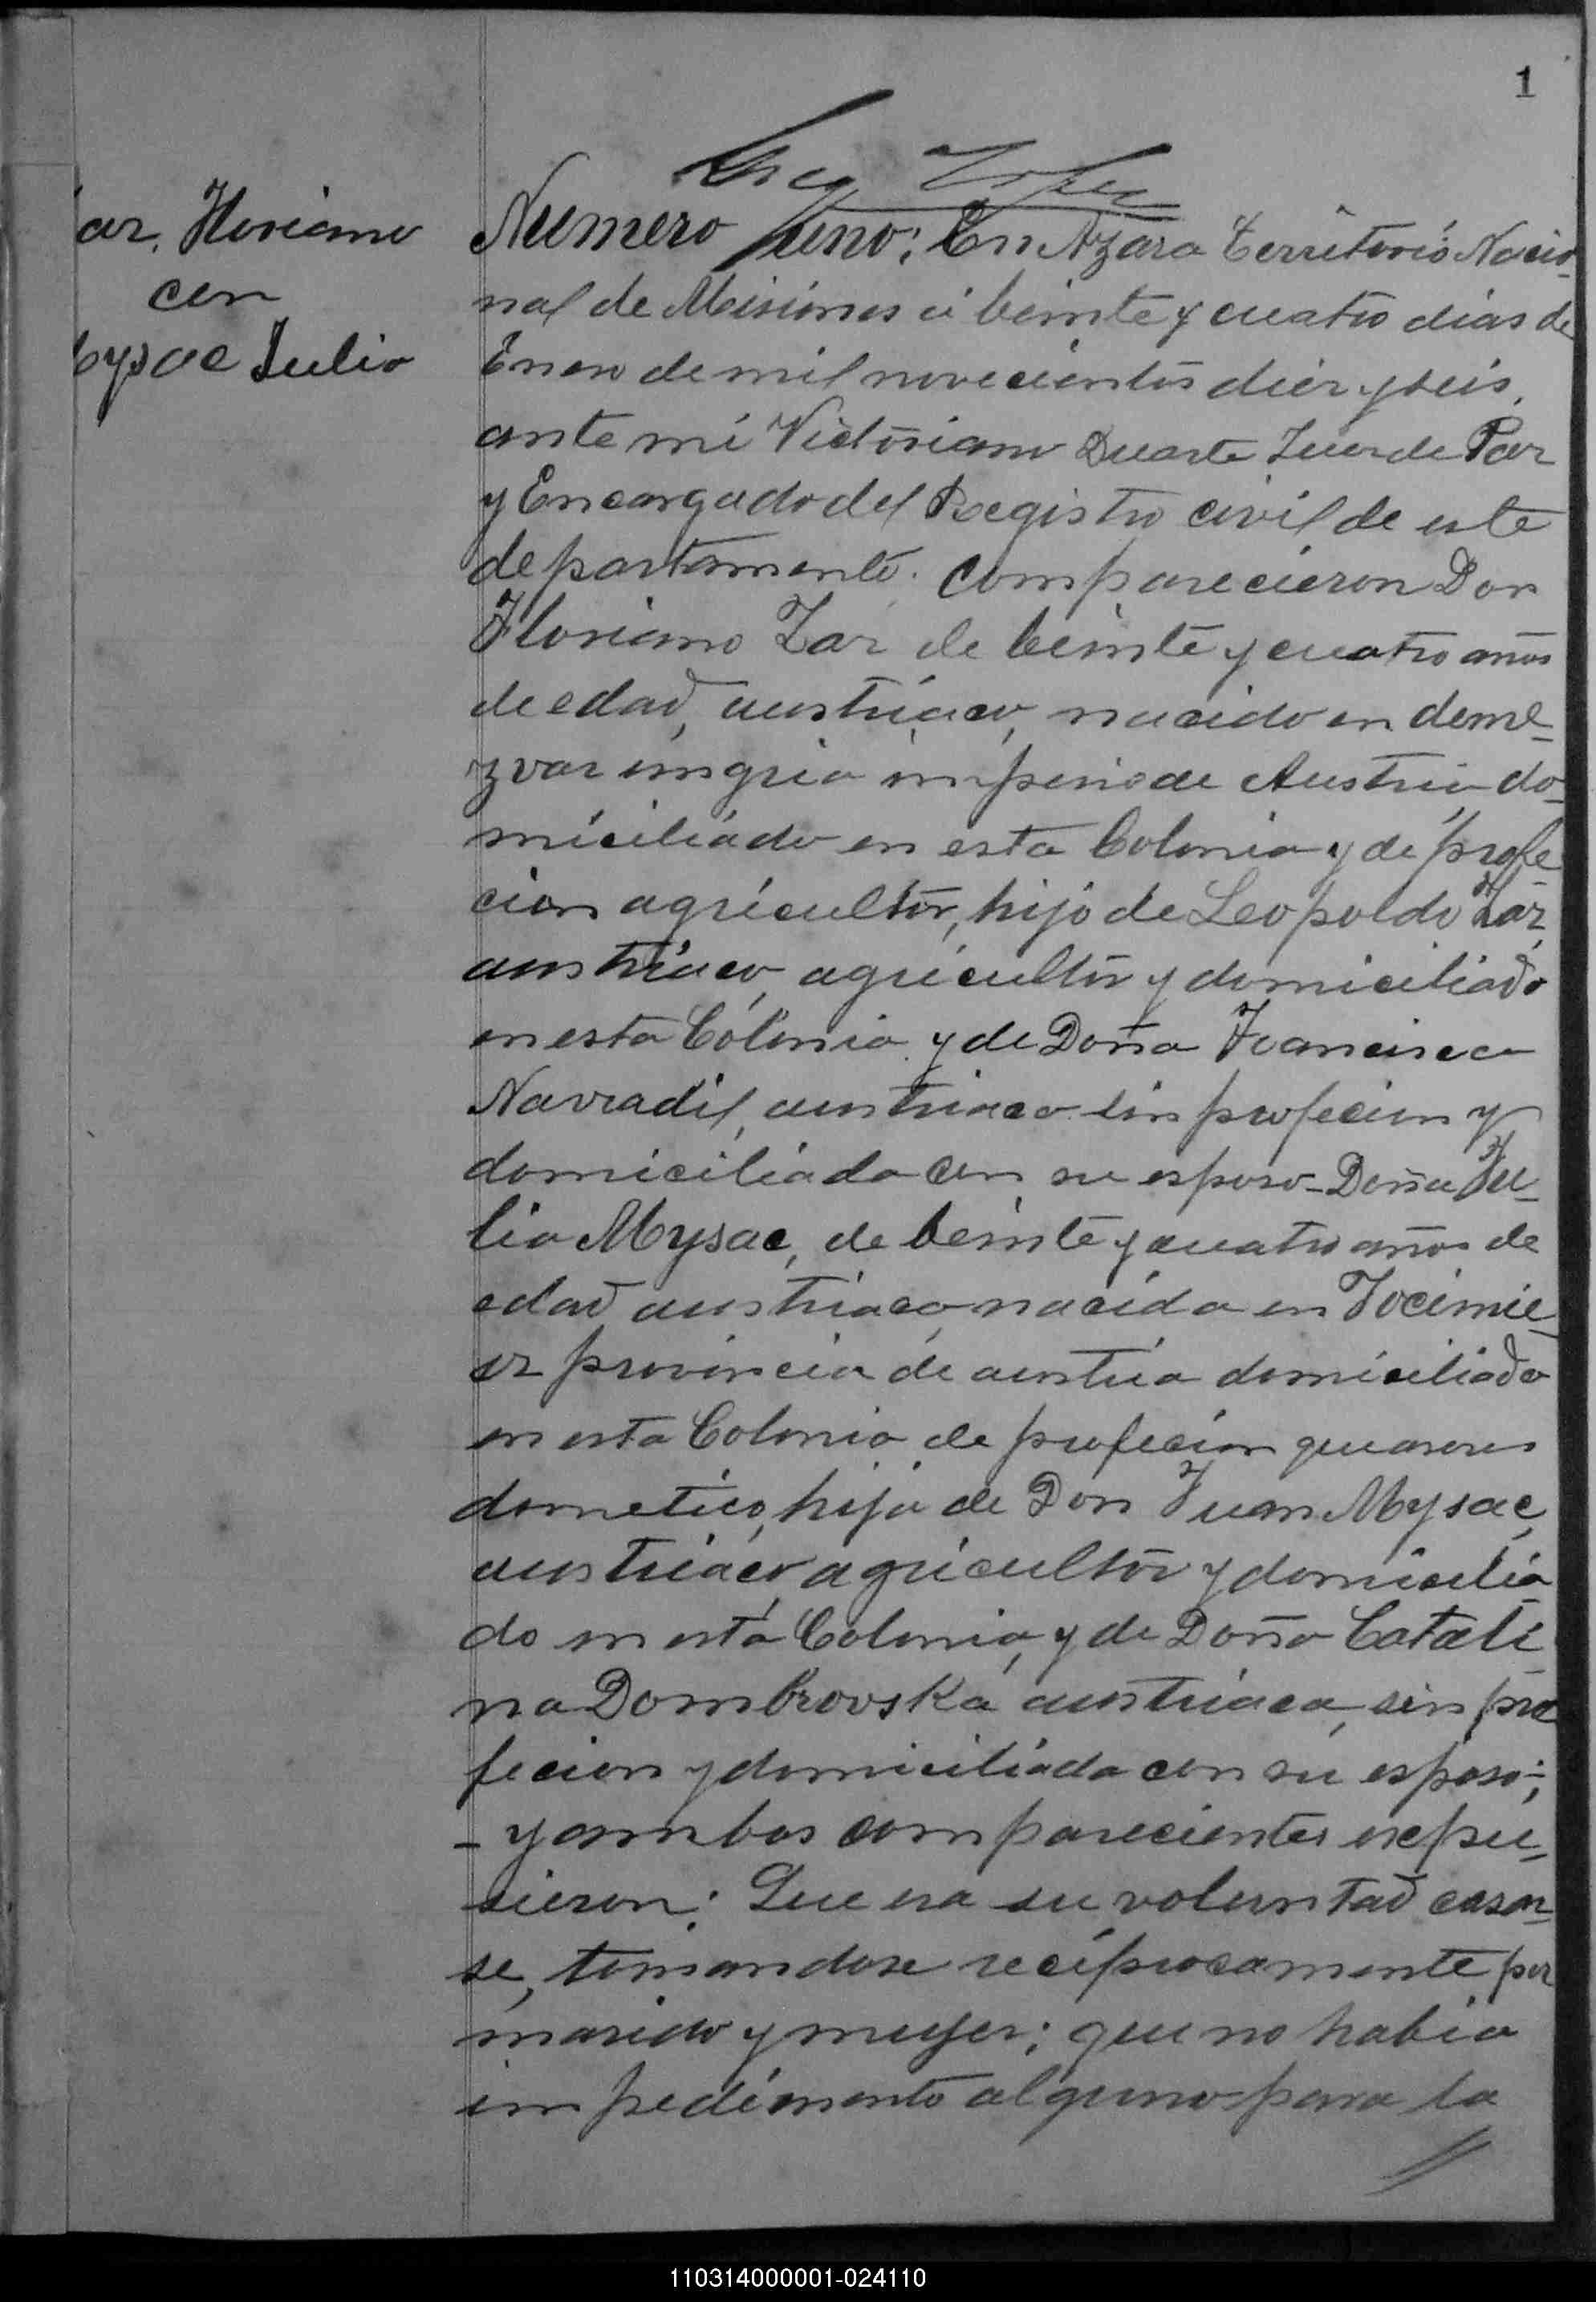 1
ar. Floriano
con
ysac Julia
Numero uno: En Azara Territorio Nacio-
nal de Misiones á beinte y cuatro dias de
Enero de mil novecientos diez y seis,
ante mi Victoriano Duarte Juez de Paz
y Encargado del Registro civil de este
departamento. Comparecieron Don
Floriano Zar de beinte y cuatro años
de edad, austriaco, nacido en deme-
zvar ungria imperio de Austria do-
miciliado en esta Colonia y de profe-
cion agricultor, hijo de Leopoldo Zar,
austriaco, agricultor y domiciliado
en esta Colonia y de Doña Francisca
Navradil, austriaca sin profecion y
domiciliada con su esposo - Doña Ju-
lia Mysac, de beinte y cuatro años de
edad austriaca, nacida en Tocimie-
rz provincia de austria domiciliada
en esta Colonia de profecion queaseres
dometico, hija de Don Juan Mysac,
austriaco, agricultor y domicilia
do en esta Colonia, y de Doña Catali-
na Dombrovska austriaca, sin pro
fecion y domiciliada con su esposo;
- y ambos comparecientes expu-
sieron: Que era su voluntad casar-
se, tomandose reciprocamente por
marido y mujer; que no habia
impedimento alguno para la
110314000001-024110